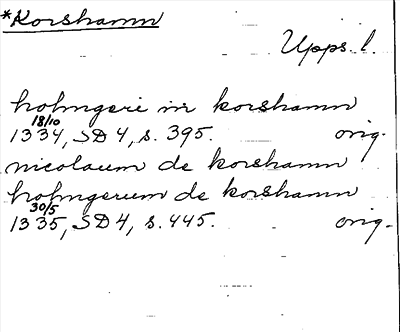 *Korshamn
Upps. l.
holmgeri in korshamn
18/10
1334, SD 4, s. 395. orig.
nicolaum de korshamn
holmgerum de korshamn
30/5
1335, SD 4, s. 445. orig.